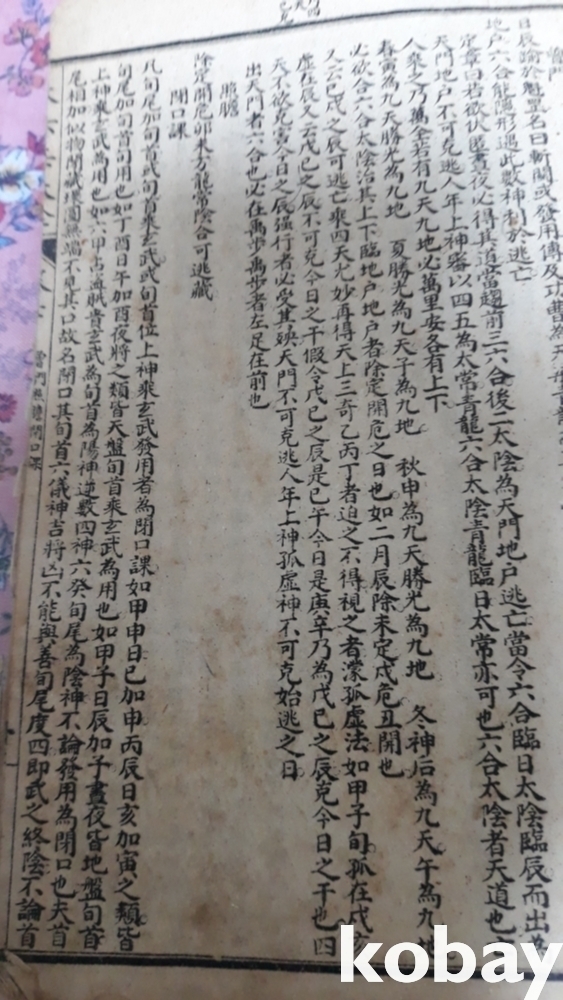 日辰諭於魁罡名曰斬關或發用傳及功曹為天
地戶六合能隱形遇此數神利於逃亡
定章曰若欲伏匿晝夜必得其道當趨前三六合後二太陰為天門地戶逃亡當令六合臨日太陰臨辰而出
天門地戶不可克逃人年上神審以四五為太常青龍六合太陰青龍臨日太常亦可也六合太陰者天道也
人乘之乃萬全若有九天九地必萬里安各有上下
春寅為九天勝光為九地 夏勝光為九天子為九地 秋申為九天勝光為九地 冬神后為九天午為九地
必欲合六合太陰治其上下臨地戶地戶者除定開危之日也如二月辰除未定戌危丑開也
又云己戌之辰可逃亡乘四天尤妙再得天上三奇乙丙丁者迫之不得視之者濛孤虛法如甲子旬孤在戌亥
虛在辰又云戊己之辰不可克今日之干假令戊己之辰是巳午今日是庚辛乃為戊己之辰克今日之干也四
天不欲克寅今日之辰強行者必受其殃天門不可克逃人年上神孤虛神不可克始逃之日
出天門者六合也必在禹步禹步者左足在前也
除定開危卯未方龍常陰合可逃藏
閉口課
凡旬尾加旬首或旬首乘玄武武旬首位上神乘玄武發用者為閉口課如甲申日巳加申丙辰日亥加寅之類皆
旬尾加旬首旬用也如丁酉日午加酉夜將之類皆天盤旬首乘玄武為用也如甲子日辰加子晝夜皆地盤旬首
上神乘玄武為用也如六甲占盜賊責玄武為旬首為陽神逆數四神六癸旬尾為陰神不論發用為閉口也夫首
尾相加似物閉緘環圓無端不見其口故名閉口其旬首六儀神吉將凶不能與善旬尾度四即武之終陰不論首
閉口課
kobay